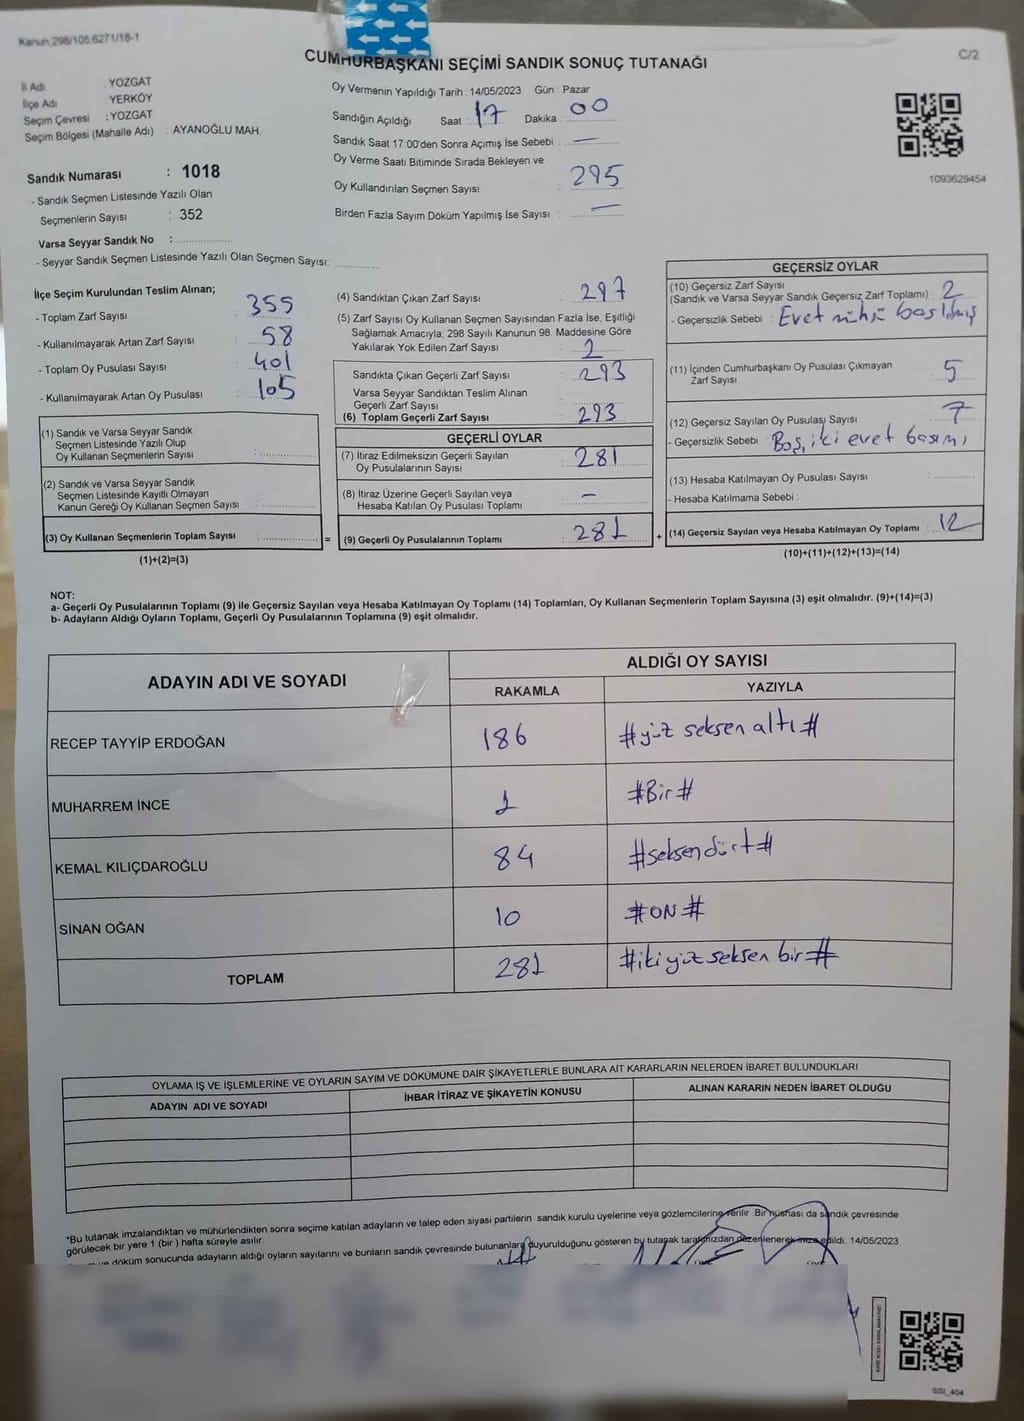 Kanun,298/105,6271/18-1
C/2
CUMHURBAŞKANI SEÇİMİ SANDIK SONUÇ TUTANAĞI
İl Adı : YOZGAT
İlçe Adı : YERKÖY
Seçim Çevresi : YOZGAT
Seçim Bölgesi (Mahalle Adı) : AYANOĞLU MAH.
Oy Vermenin Yapıldığı Tarih : 14/05/2023 Gün : Pazar
Sandığın Açıldığı Saat : 17 Dakika : 00
Sandık Saat 17:00'den Sonra Açımış İse Sebebi : —
Oy Verme Saati Bitiminde Sırada Bekleyen ve
Oy Kullandırılan Seçmen Sayısı : 295
Birden Fazla Sayım Döküm Yapılmış İse Sayısı : —
1093629454
Sandık Numarası : 1018
- Sandık Seçmen Listesinde Yazılı Olan
Seçmenlerin Sayısı : 352
Varsa Seyyar Sandık No : ....................
- Seyyar Sandık Seçmen Listesinde Yazılı Olan Seçmen Sayısı: ..............
İlçe Seçim Kurulundan Teslim Alınan;
- Toplam Zarf Sayısı : 355
- Kullanılmayarak Artan Zarf Sayısı : 58
- Toplam Oy Pusulası Sayısı : 401
- Kullanılmayarak Artan Oy Pusulası : 105
(1) Sandık ve Varsa Seyyar Sandık
Seçmen Listesinde Yazılı Olup
Oy Kullanan Seçmenlerin Sayısı : ..............
(2) Sandık ve Varsa Seyyar Sandık
Seçmen Listesinde Kayıtlı Olmayan
Kanun Gereği Oy Kullanan Seçmen Sayısı : ..............
(3) Oy Kullanan Seçmenlerin Toplam Sayısı : .............. =
(1)+(2)=(3)
(4) Sandıktan Çıkan Zarf Sayısı : 297
(5) Zarf Sayısı Oy Kullanan Seçmen Sayısından Fazla İse, Eşitliği
Sağlamak Amacıyla; 298 Sayılı Kanunun 98. Maddesine Göre
Yakılarak Yok Edilen Zarf Sayısı : 2
Sandıkta Çıkan Geçerli Zarf Sayısı : 293
Varsa Seyyar Sandıktan Teslim Alınan
Geçerli Zarf Sayısı :
(6) Toplam Geçerli Zarf Sayısı : 293
GEÇERLİ OYLAR
(7) İtiraz Edilmeksizin Geçerli Sayılan
Oy Pusulalarının Sayısı : 281
(8) İtiraz Üzerine Geçerli Sayılan veya
Hesaba Katılan Oy Pusulası Toplamı : —
(9) Geçerli Oy Pusulalarının Toplamı : 281 +
GEÇERSİZ OYLAR
(10) Geçersiz Zarf Sayısı
(Sandık ve Varsa Seyyar Sandık Geçersiz Zarf Toplamı) : 2
- Geçersizlik Sebebi : Evet mühü basılmış
(11) İçinden Cumhurbaşkanı Oy Pusulası Çıkmayan
Zarf Sayısı : 5
(12) Geçersiz Sayılan Oy Pusulası Sayısı : 7
- Geçersizlik Sebebi : Boş, iki evet basımı
(13) Hesaba Katılmayan Oy Pusulası Sayısı : ..............
- Hesaba Katılmama Sebebi :
(14) Geçersiz Sayılan veya Hesaba Katılmayan Oy Toplamı : 12
(10)+(11)+(12)+(13)=(14)
NOT:
a- Geçerli Oy Pusulalarının Toplamı (9) ile Geçersiz Sayılan veya Hesaba Katılmayan Oy Toplamı (14) Toplamları, Oy Kullanan Seçmenlerin Toplam Sayısına (3) eşit olmalıdır. (9)+(14)=(3)
b- Adayların Aldığı Oyların Toplamı, Geçerli Oy Pusulalarının Toplamına (9) eşit olmalıdır.
ADAYIN ADI VE SOYADI
ALDIĞI OY SAYISI
RAKAMLA YAZIYLA
RECEP TAYYİP ERDOĞAN 186 #yüz seksen altı#
MUHARREM İNCE 1 #Bir#
KEMAL KILIÇDAROĞLU 84 #seksendört#
SİNAN OĞAN 10 #ON#
TOPLAM 281 #ikiyüz seksen bir#
OYLAMA İŞ VE İŞLEMLERİNE VE OYLARIN SAYIM VE DÖKÜMÜNE DAİR ŞİKAYETLERLE BUNLARA AİT KARARLARIN NELERDEN İBARET BULUNDUKLARI
ADAYIN ADI VE SOYADI İHBAR İTİRAZ VE ŞİKAYETİN KONUSU ALINAN KARARIN NEDEN İBARET OLDUĞU
*Bu tutanak imzalandıktan ve mühürlendikten sonra seçime katılan adayların ve talep eden siyasi partilerin sandık kurulu üyelerine veya gözlemcilerine verilir. Bir nüshası da sandık çevresinde
görülecek bir yere 1 (bir ) hafta süreyle asılır.
ve döküm sonucunda adayların aldığı oyların sayılarını ve bunların sandık çevresinde bulunanlara duyurulduğunu gösteren bu tutanak tarafımızdan düzenlenerek imza edildi. 14/05/2023
GSI_404